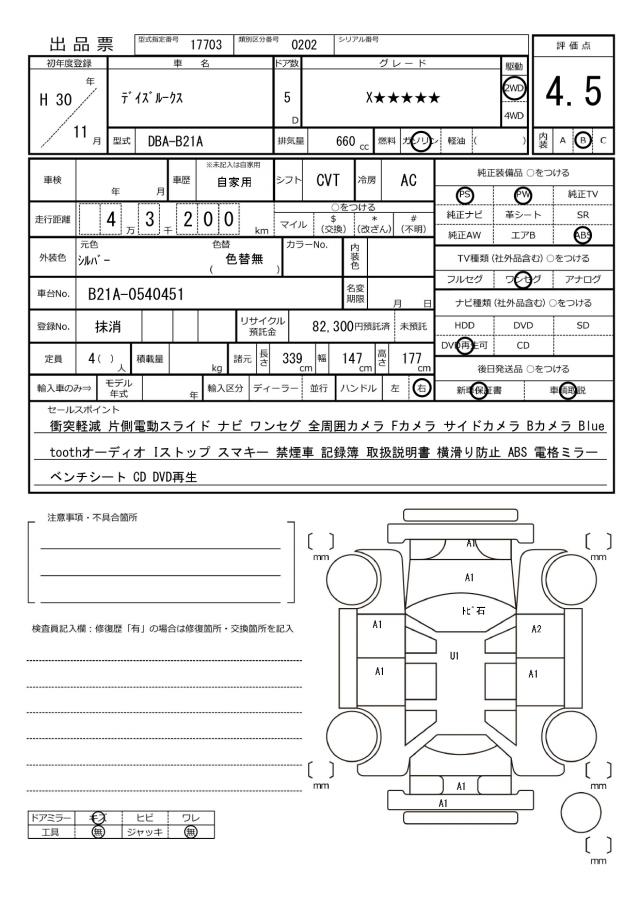 出品票 型式指定番号 17703 類別区分番号 0202 シリアル番号
評価点
4.5
内装 A B C
初年度登録 車名 ドア数 グレード 駆動
H 30 年 11 月
ﾃﾞｲｽﾞﾙｰｸｽ 5 D X★★★★★ 2WD 4WD
型式 DBA-B21A 排気量 660 cc 燃料 ガソリン 軽油 ( )
車検 年 月 車歴 ※未記入は自家用 自家用 シフト CVT 冷房 AC
走行距離 4 万 3 千 2 0 0 km
○をつける
マイル $ (交換) * (改ざん) # (不明)
外装色 元色 ｼﾙﾊﾞｰ 色替 ( 色替無 ) カラーNo. 内装色
車台No. B21A-0540451 名変期限 月 日
登録No. 抹消 リサイクル預託金 82,300円預託済 未預託
定員 4( )人 積載量 kg 諸元 長さ 339cm 幅 147cm 高さ 177cm
輸入車のみ⇒ モデル年式 年 輸入区分 ディーラー 並行 ハンドル 左 右
純正装備品 ○をつける
PS PW 純正TV
純正ナビ 革シート SR
純正AW エアB ABS
TV種類 (社外品含む) ○をつける
フルセグ ワンセグ アナログ
ナビ種類 (社外品含む) ○をつける
HDD DVD SD
DVD再生可 CD
後日発送品 ○をつける
新車保証書 車輌取説
セールスポイント
衝突軽減 片側電動スライド ナビ ワンセグ 全周囲カメラ Fカメラ サイドカメラ Bカメラ Blue
toothオーディオ Iストップ スマキー 禁煙車 記録簿 取扱説明書 横滑り防止 ABS 電格ミラー
ベンチシート CD DVD再生
注意事項・不具合箇所
検査員記入欄：修復歴「有」の場合は修復箇所・交換箇所を記入
ドアミラー キズ ヒビ ワレ
工具 無 ジャッキ 無
A1
mm
mm
A1
ﾄﾋﾞ石
A1
A2
U1
A1
A1
mm
mm
A1
A1
mm